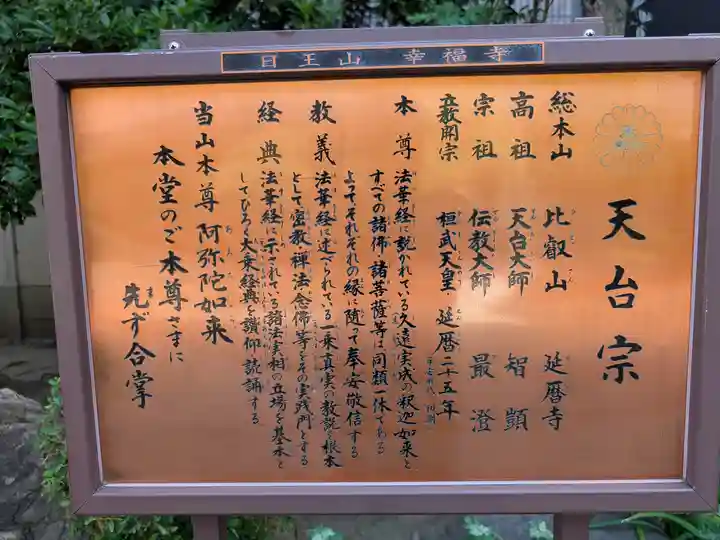 日王山 幸福寺
天台宗
総本山 比叡山 延暦寺
高祖 天台大師 智顗
宗祖 伝教大師 最澄
立教開宗 桓武天皇・延暦二十五年
本尊 法華経に説かれている久遠実成の釈迦如来と
すべての諸佛・諸菩薩等は同類一体である
よってそれぞれの縁に随て奉安敬信する
教義 法華経に述べられている一乗真実の教説を根本
として密教・禅法・念佛等をその実践門とする
経典 法華経に示されている諸法実相の立場を基本と
してひろく大乗経典を讃仰読誦する
当山本尊 阿弥陀如来
本堂のご本尊さまに
先ず合掌